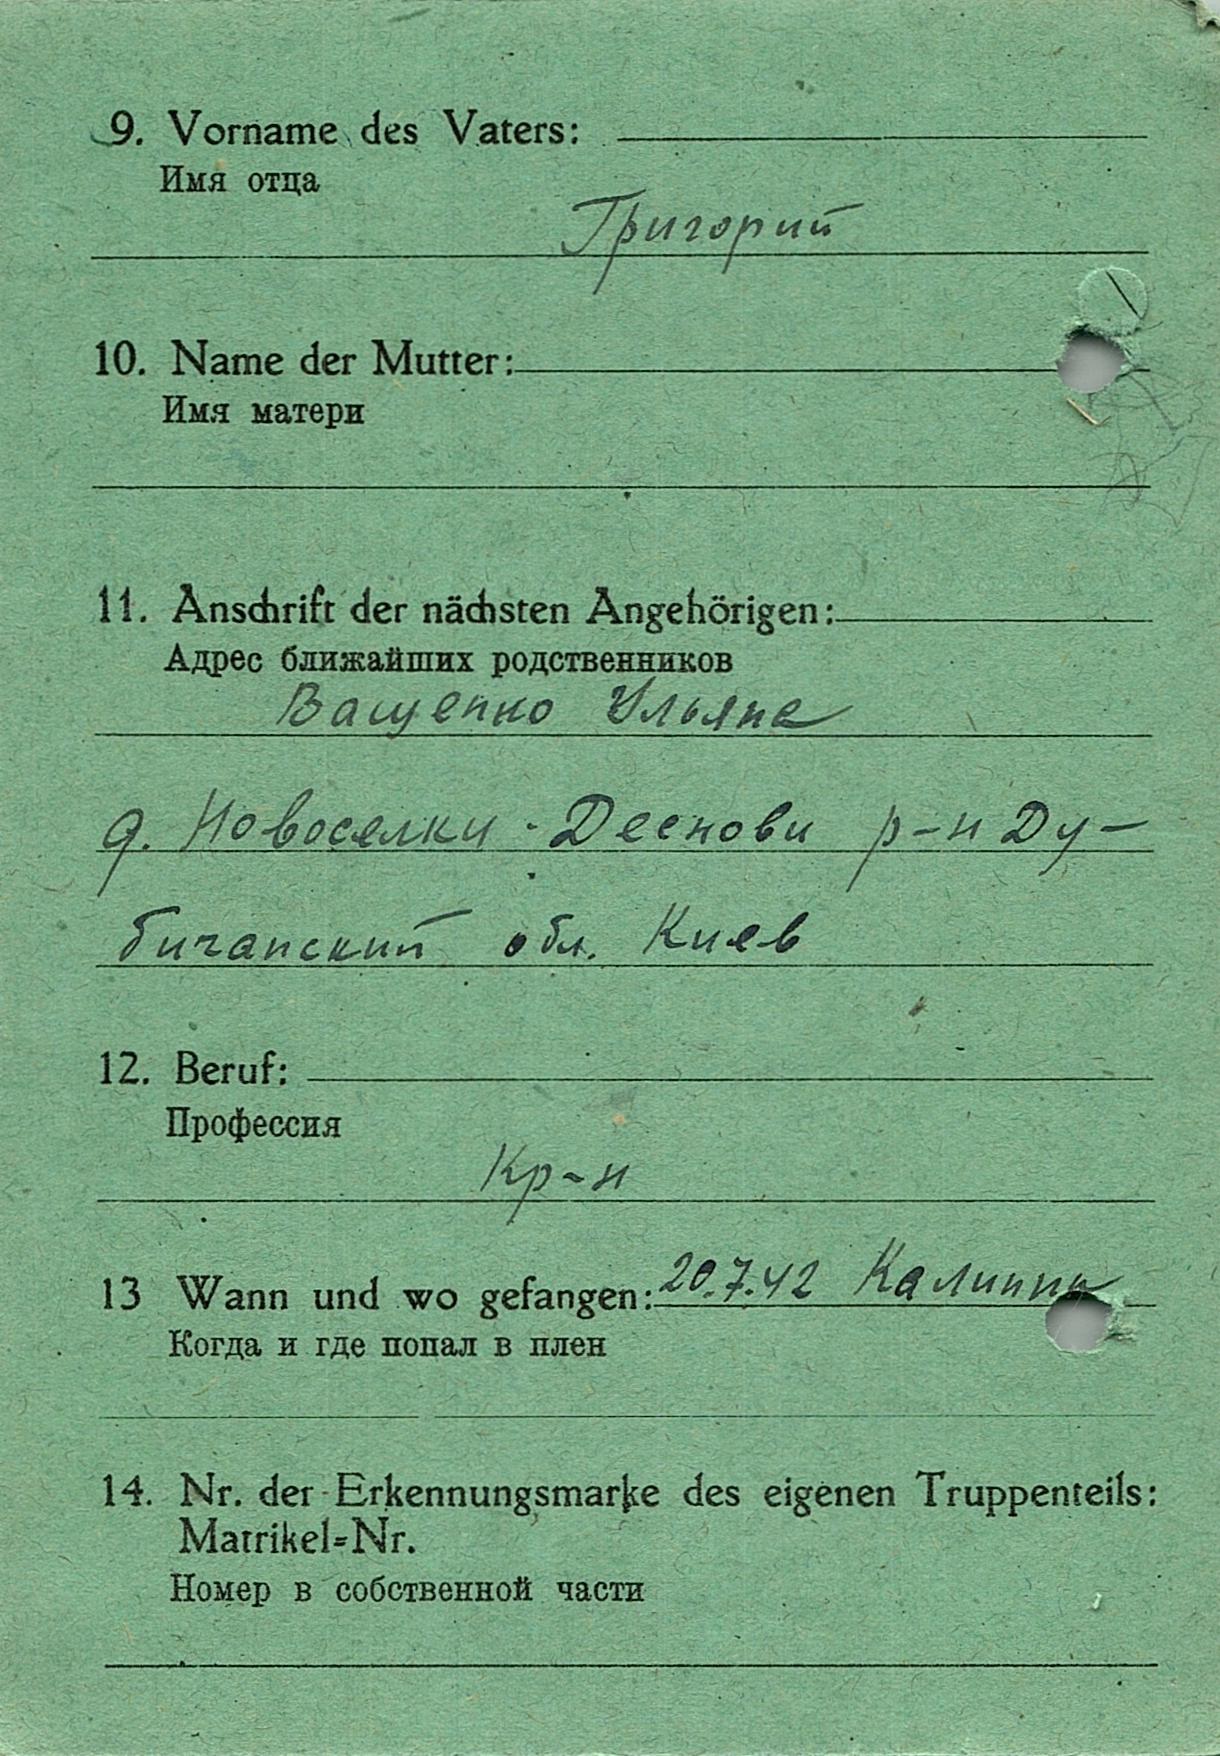 9. Vorname des Vaters:
Имя отца
Григорий
10. Name der Mutter:
Имя матери
11. Anschrift der nächsten Angehörigen:
Адрес ближайших родственников
Ващенко Ульяне
д. Новоселки-Деснови р-н Ду-
бичанский обл. Киев
12. Beruf:
Профессия
Кр-н
13 Wann und wo gefangen: 20.7.42 Калинин
Когда и где попал в плен
14. Nr. der Erkennungsmarke des eigenen Truppenteils:
Matrikel=Nr.
Номер в собственной части